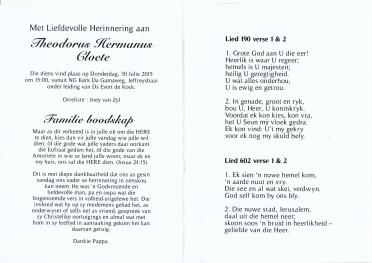 Met Liefdevolle Herinnering aan
Theodorus Hermanus
Cloete
Die diens vind plaas op Donderdag, 30 Julie 2015
om 15:00, vanuit NG Kerk Da Gamaweg, Jeffreysbaai
onder leiding van Ds Evert de Kock.
Orreliste : Joey van Zyl
Familie boodskap
Maar as dit verkeerd is in julle oë om die HERE
te dien, kies dan vir julle vandag wie julle wil
dien: óf die gode wat julle vaders daar oorkant
die Eufraat gedien het, óf die gode van die
Amoriete in wie se land julle woon; maar ek en
my huis, ons sal die HERE dien. (Josua 24:15)
Dit is met diepe dankbaarheid dat ons as gesin
vandag ons vader se herinnering in oënskou
kan neem. Hy was 'n Godvresende en
liefdevolle man, pa en oupa wat die
bogenoemde vers in volheid uitgelewe het. Die
invloed wat hy op sy medemens gehad het, as
onderwyser of selfs net as vriend, gesprek van
sy Christelike oortuigings en almal wat met
hom in sy leeftyd in aanraking gekom het kan
daarvan getuig.
Dankie Pappa.
Lied 190 verse 1 & 2
1. Grote God aan U die eer!
Heerlik is waar U regeer;
hemels is U majesteit;
heilig U geregtigheid.
U wat alles onderhou,
U is ewig en getrou.
2. In genade, groot en ryk,
bou U, Heer, U koninkryk.
Voordat ek kon kies, kon vra,
het U Seun my vloek gedra.
Ek kon vind: U't my gekry
voor ek nog my skuld bely.
Lied 602 verse 1 & 2
1. Ek sien 'n nuwe hemel kom,
'n aarde nuut en vry.
Die see en al wat skei, verdwyn.
God self kom by ons bly.
2. Die nuwe stad, Jerusalem,
daal uit die hemel neer;
skoon soos 'n bruid in heerlikheid –
geliefde van die Heer.